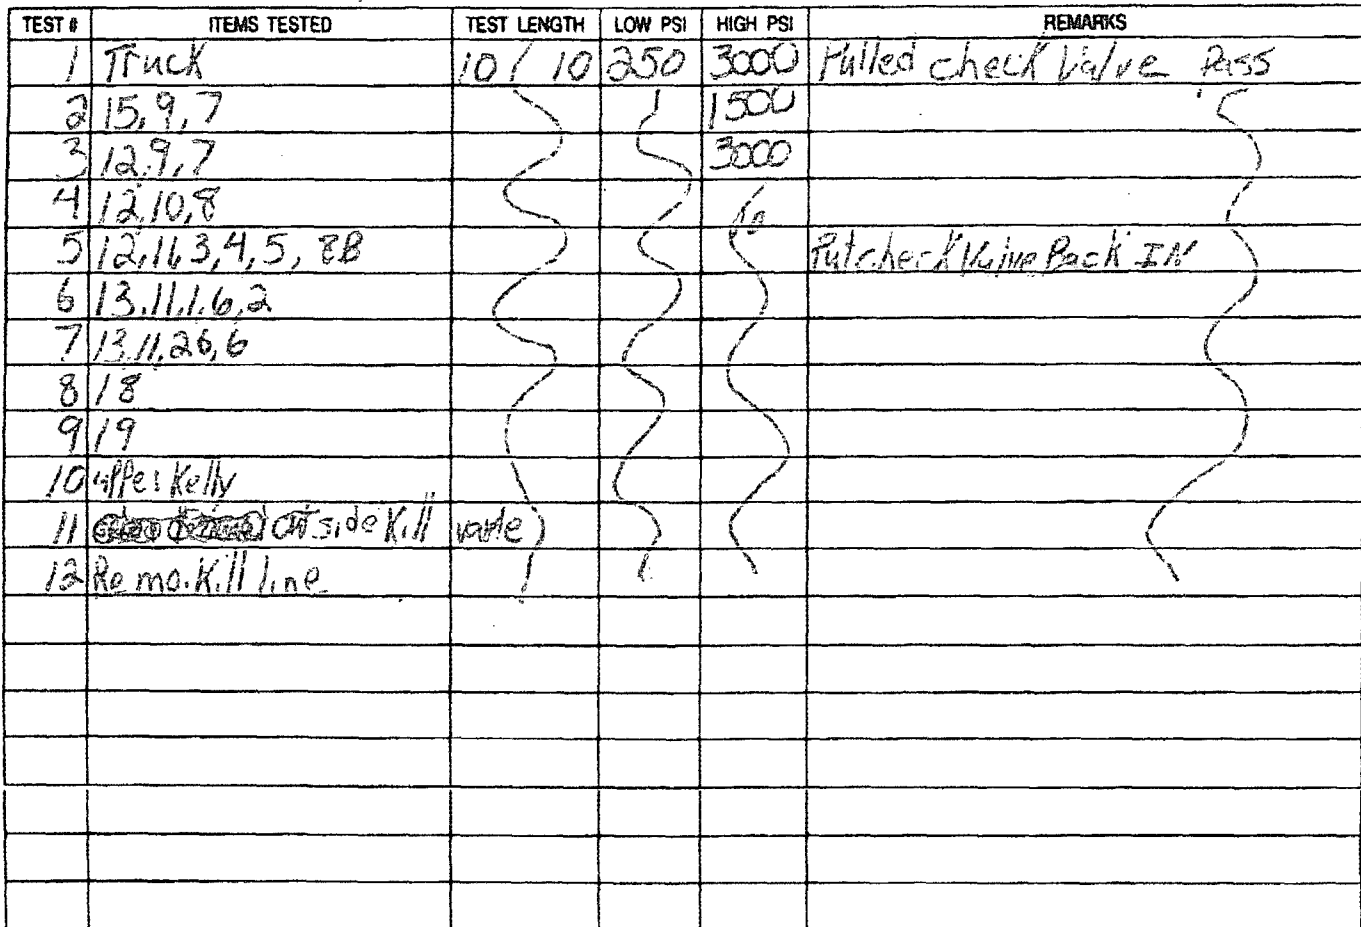 TEST # ITEMS TESTED TEST LENGTH LOW PSI HIGH PSI REMARKS
1 Truck 10 / 10 250 3000 Pulled check Valve Pass
2 15, 9, 7 1500
3 12, 9, 7 3000
4 12, 10, 8
5 12, 11, 3, 4, 5, 8B Put check Valve Back IN
6 13, 11, 1, 6, 2
7 13, 11, 26, 6
8 18
9 19
10 upper Kelly
11 outside Kill
12 Remo. Kill line